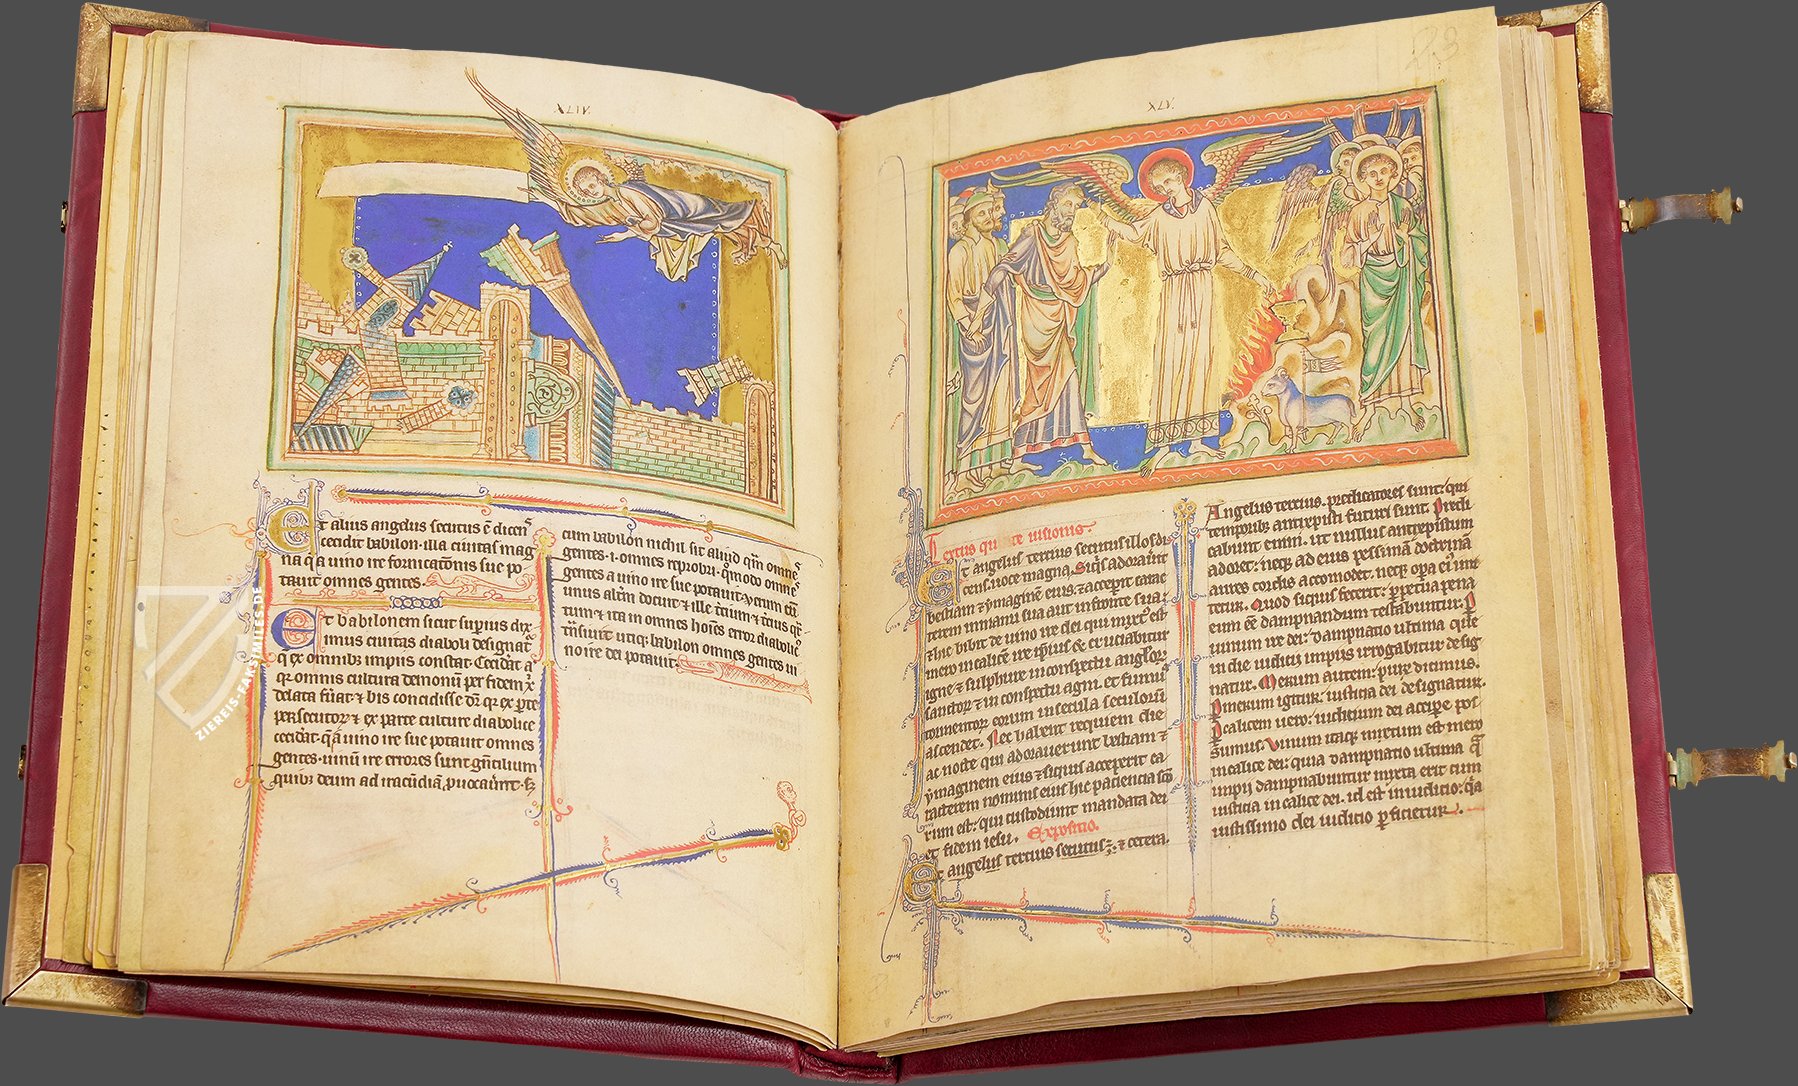 XLIV.
Et alius angelus secutus ē dicens
cecidit babilon illa ciuitas mag
na q̄ a uino ire fornicatōnis sue po
tauit omnes gentes.
Et babilonem sicut superius dix
imus ciuitas diaboli designat᷑
q ex omnibꝫ impiis constat. Cecidit a᷑
qꝛ omnis cultura demonum per fidem xp̄i
delata fuit ⁊ bis concidisse dr̄ qꝛ ex pꝑte
persecutoꝝ ⁊ ex parte culture diabolice
cecidit. q̄ a uino ire sue potauit omnes
gentes. uinū ire errores sunt gentilium
quibꝫ deum ad iracūdiā ꝓuocauerūt. Sꝫ
cum babilon nichil sit aliud qm̄ omnes
gentes .i. omnes reprobi. quomodo omnes
gentes a uino ire sue potauit
unus alterum docuit ⁊ ille tercium ⁊ tcius
tum ⁊ ita in omnes hoīes error diabolic
tr̄nsiuit utiqꝫ babilon omnes gentes ui
no ire dei potauit.
XLV.
23
Textus qu te uisionis.
Et angelus tercius secutus est illos di
cens. uoce magna. Siquis adorauerit
bestiam ⁊ ymaginem eius. ⁊ acceperit carac
terem in manu sua aut in fronte sua.
⁊ hic bibet de uino ire dei qui mixtꝰ est
mero in calice ire ipsius ⁊ cruciabitur
igne ⁊ sulphure in conspectu angeloꝝ
sanctoꝝ ⁊ in conspectu agni. et fumus
tormentoꝝ eorum in secula seculorū
ascendet. Nec habent requiem die
ac nocte qui adorauerunt bestiam ⁊
ymaginem eius ⁊ siquis acceperit ca
racterem nominis eius hic paciencia scōꝝ
rum est: qui custodiunt mandata dei
et fidem iesu. Expositio.
Et angelus tercius secutus: ⁊ cetera.
Angelus tercius. predicatores sunt: qui
temporibꝫ antixpisti futuri sunt. Predi
cabunt enim. ut nullus antixpistum
adoret: neqꝫ ad eius pessimā doctrinā
aures cordis accomodet. neqꝫ opa eiꝰ imi
tetur. Quod siquis fecerit: perpetua pena
eum eē dampnandum testabuntur.
uinum ire dei: dampnatio ultima que
in die iudicii impiis irrogabitur desig
natur. Merum autem: pure dicimus.
Per merum igitur: iusticia dei designatur.
Per calicem uero: iudicium dei accipe pos
sumus. Vinum itaqꝫ mixtum est mero
in calice dei: quia dampnatio ultima q̄
impii dampnabuntur mixta erit cum
iusticia in calice dei. id est in iudicio: q̄a
iustissimo dei iudicio ꝑficietur.
ZIEREIS-FAKSIMILES.DE